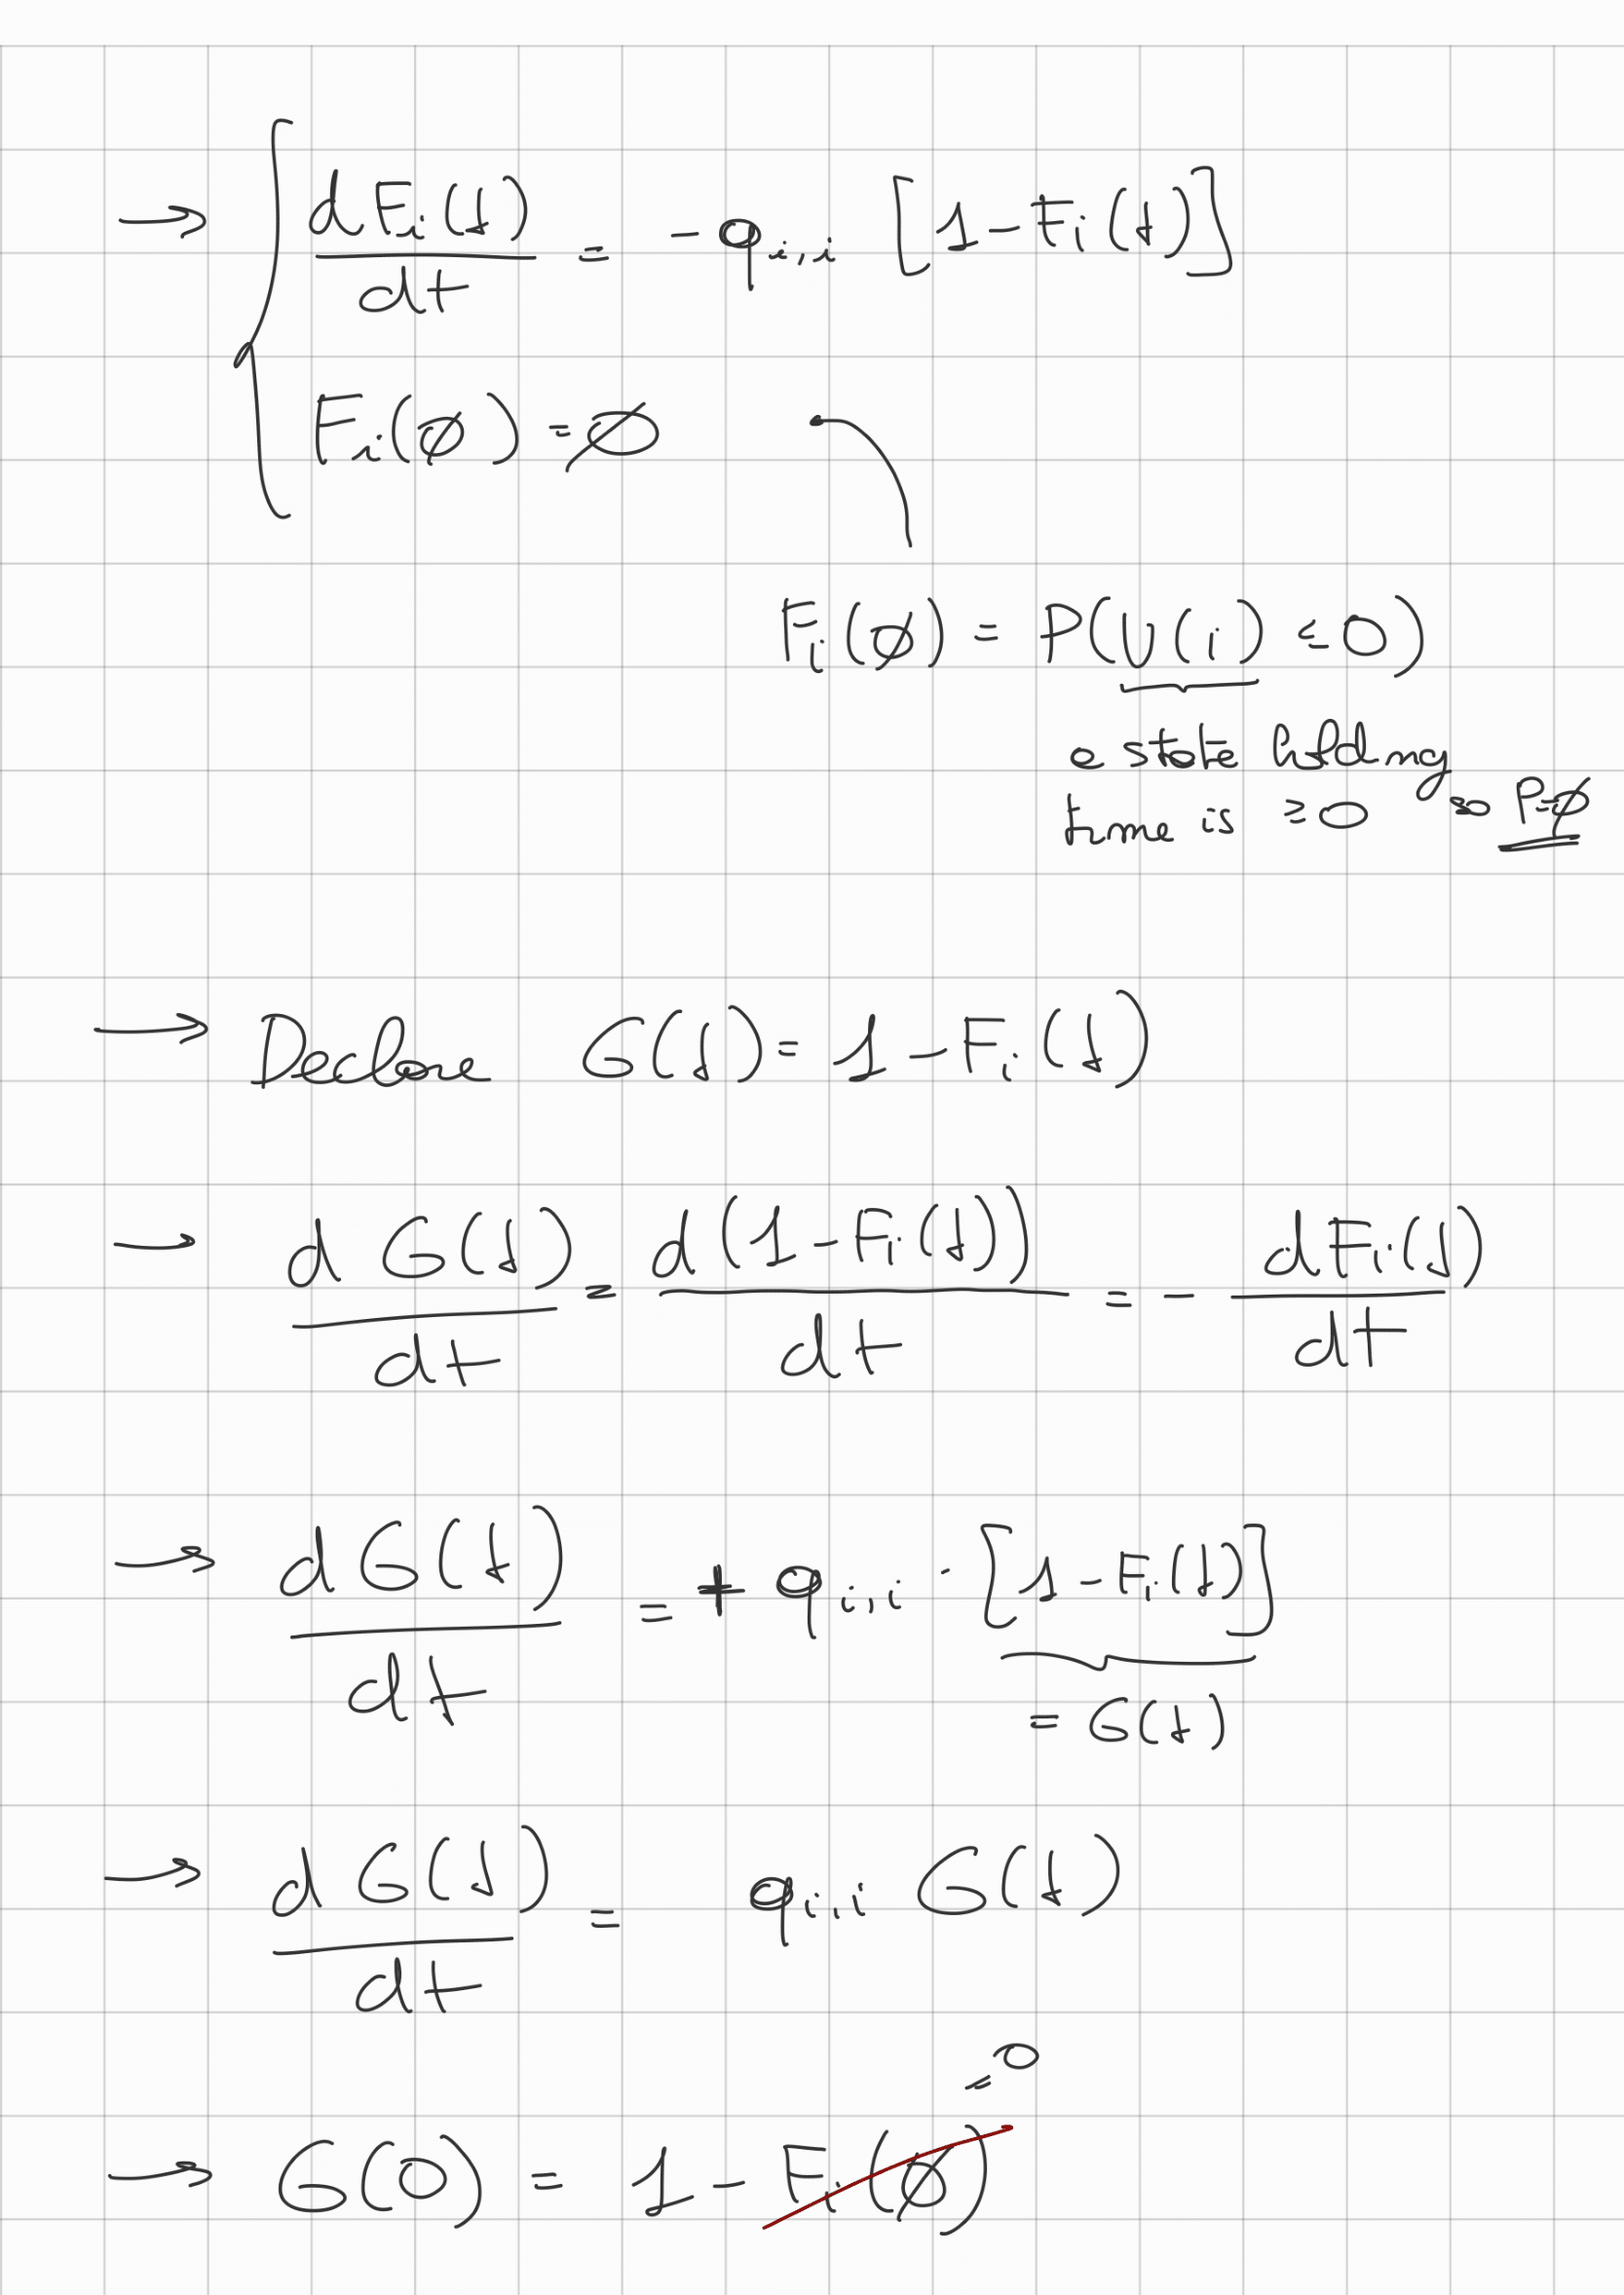 → { dFi(t)/dt = - qi,i [1 - Fi(t)]
Fi(∅) = ∅
Fi(∅) = P(V(i) ≤ 0)
a state holding
time is ≥0 so P=∅
→ Declare G(t) = 1 - Fi(t)
→ dG(t)/dt = d(1 - Fi(t))/dt = - dFi(t)/dt
→ dG(t)/dt = + qi,i · [1 - Fi(t)]
= G(t)
→ dG(t)/dt = qi,i G(t)
=0
→ G(0) = 1 - Fi(∅)